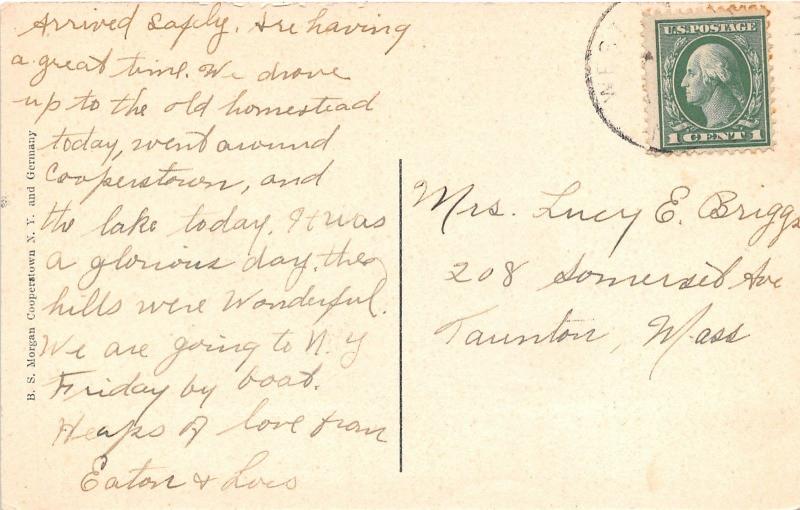 Arrived Safely. Are having
a great time. We drove
up to the old homestead
today, went around
Cooperstown, and
the lake today. It was
a glorious day, the
hills were Wonderful.
We are going to N. Y
Friday by boat.
Heaps of love from
Eaton & Lois
B. S. Morgan Cooperstown N. Y. and Germany
U.S. POSTAGE
1 CENT 1
WEST
Mrs. Lucy E. Briggs
208 Somerset Ave
Taunton, Mass